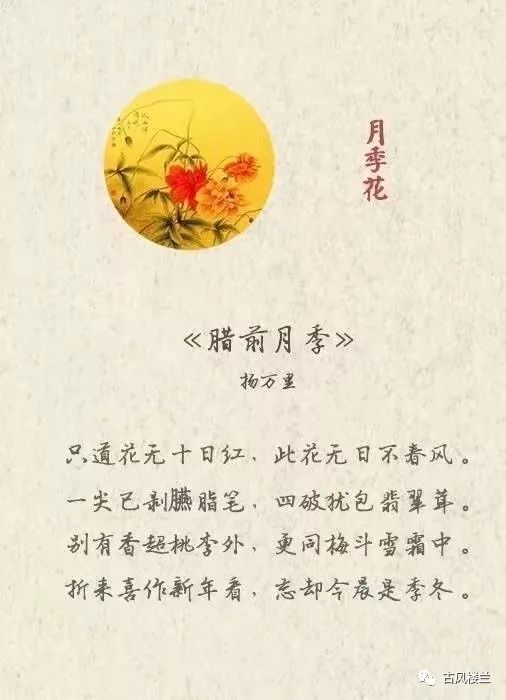 月季花
《腊前月季》
扬万里
只道花无十日红，此花无日不春风。
一尖已剥臙脂笔，四破犹包翡翠茸。
别有香超桃李外，更同梅斗雪霜中。
折来喜作新年看，忘却今晨是季冬。
古风楼兰